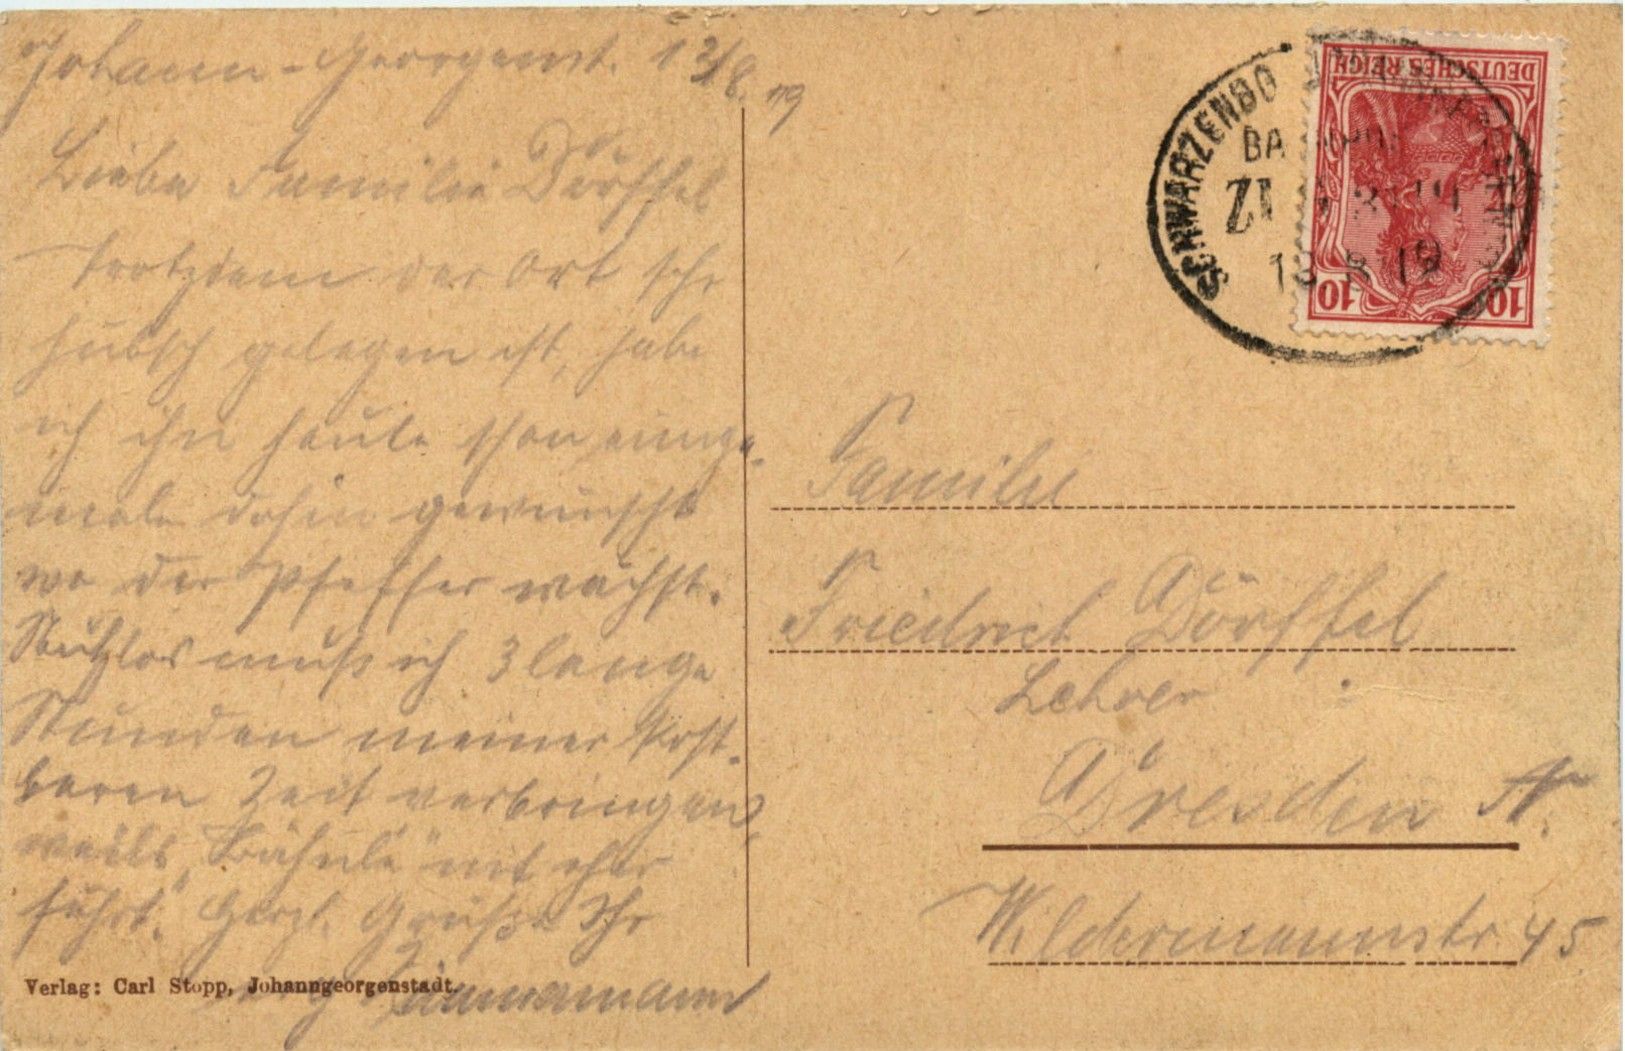 Johann-Georgenst. 13/8. 19
Liebe Familie Dörffel
Trotzdem der Ort sehr
hübsch gelegen ist, habe
ich ihn heute schon einige-
male dahin gewünscht
wo der Pfeffer wächst.
Nutzlos muß ich 3 lange
Stunden meiner kost-
baren Zeit verbringen,
weils „Bähnle“ nit eher
fährt. Herzl. Grüße Ihr
Zimmermann
Verlag: Carl Stopp, Johanngeorgenstadt.
SCHWARZENBG
BA
ZUG
13 8 19
DEUTSCHES REICH
10 10
Familie
Friedrich Dörffel
Lehrer
Dresden N.
Wildermannstr. 45